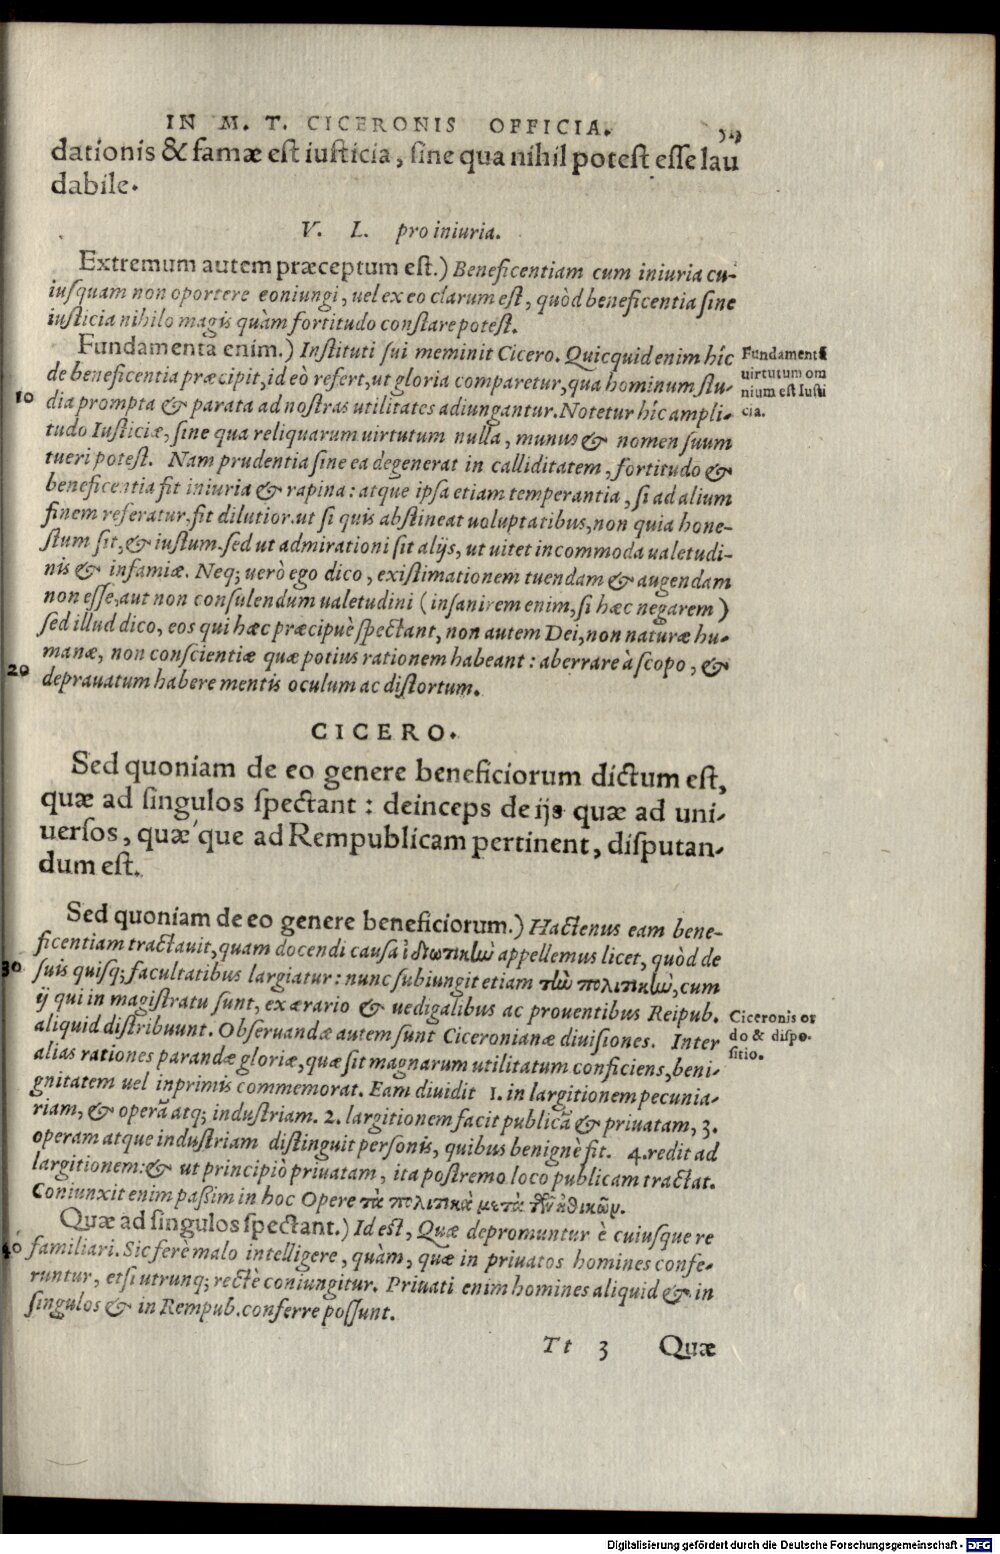 IN M. T. CICERONIS OFFICIA.
dationis & famæ est iusticia, sine qua nihil potest esse lau
dabile.
V. L. pro iniuria.
Extremum autem præceptum est.) Beneficentiam cum iniuria cu-
iusquam non oportere coniungi, uel ex eo clarum est, quòd beneficentia sine
iusticia nihilo magis quàm fortitudo constare potest.
Fundamenta enim.) Instituti sui meminit Cicero. Quicquid enim hîc
Fundamenta
uirtutum om
nium est Iusti
cia.
de beneficentia præcipit, id eò refert, ut gloria comparetur, qua hominum stu-
10 dia prompta & parata ad nostras utilitates adiungantur. Notetur hîc ampli-
tudo Iusticiæ, sine qua reliquarum uirtutum nulla, munus & nomen suum
tueri potest. Nam prudentia sine ea degenerat in calliditatem, fortitudo &
beneficentia fit iniuria & rapina: atque ipsa etiam temperantia, si ad alium
finem referatur, fit dilutior. ut si quis abstineat uoluptatibus, non quia hone-
stum sit, & iustum. sed ut admirationi sit alijs, ut uitet incommoda ualetudi-
nis & infamiæ. Neq; uerò ego dico, existimationem tuendam & augendam
non esse, aut non consulendum ualetudini (insanirem enim, si hæc negarem)
sed illud dico, eos qui hæc præcipuè spectant, non autem Dei, non naturæ hu-
manæ, non conscientiæ quæ potius rationem habeant: aberrare à scopo, &
20 deprauatum habere mentis oculum ac distortum.
CICERO.
Sed quoniam de eo genere beneficiorum dictum est,
quæ ad singulos spectant: deinceps de ijs quæ ad uni-
uersos, quæ'que ad Rempublicam pertinent, disputan-
dum est.
Sed quoniam de eo genere beneficiorum.) Hactenus eam bene-
ficentiam tractauit, quam docendi causa ἰδιωτικὼ appellemus licet, quòd de
30 suis quisq; facultatibus largiatur: nunc subiungit etiam τὼ πολιτικὼ, cum
ij qui in magistratu sunt, ex ærario & uectigalibus ac prouentibus Reipub.
Ciceronis or
do & dispo-
sitio.
aliquid distribuunt. Obseruandæ autem sunt Ciceronianæ diuisiones. Inter
alias rationes parandæ gloriæ, quæ sit magnarum utilitatum conficiens, beni-
gnitatem uel inprimis commemorat. Eam diuidit 1. in largitionem pecunia-
riam, & operā atq; industriam. 2. largitionem facit publicā & priuatam, 3.
operam atque industriam distinguit personis, quibus benignè fit. 4. redit ad
largitionem: & ut principiò priuatam, ita postremo loco publicam tractat.
Coniunxit enim paßim in hoc Opere τὰ πολιτικὰ μετὰ τῶν ἠθικῶν.
Quæ ad singulos spectant.) Id est, Quæ depromuntur è cuiusque re
40 familiari. Sic ferè malo intelligere, quàm, quæ in priuatos homines confe-
runtur, etsi utrunq; rectè coniungitur. Priuati enim homines aliquid & in
singulos & in Rempub. conferre possunt.
Tt 3 Quæ
Digitalisierung gefördert durch die Deutsche Forschungsgemeinschaft - DFG